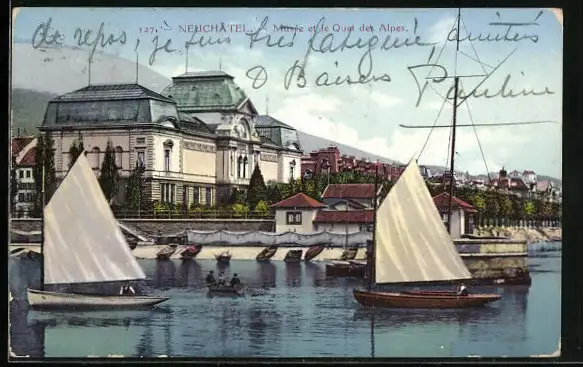 127. – NEUCHÂTEL. – Musée et le Quai des Alpes.
de repos, je suis très fatiguée, amitiés
8 Baisers Pauline